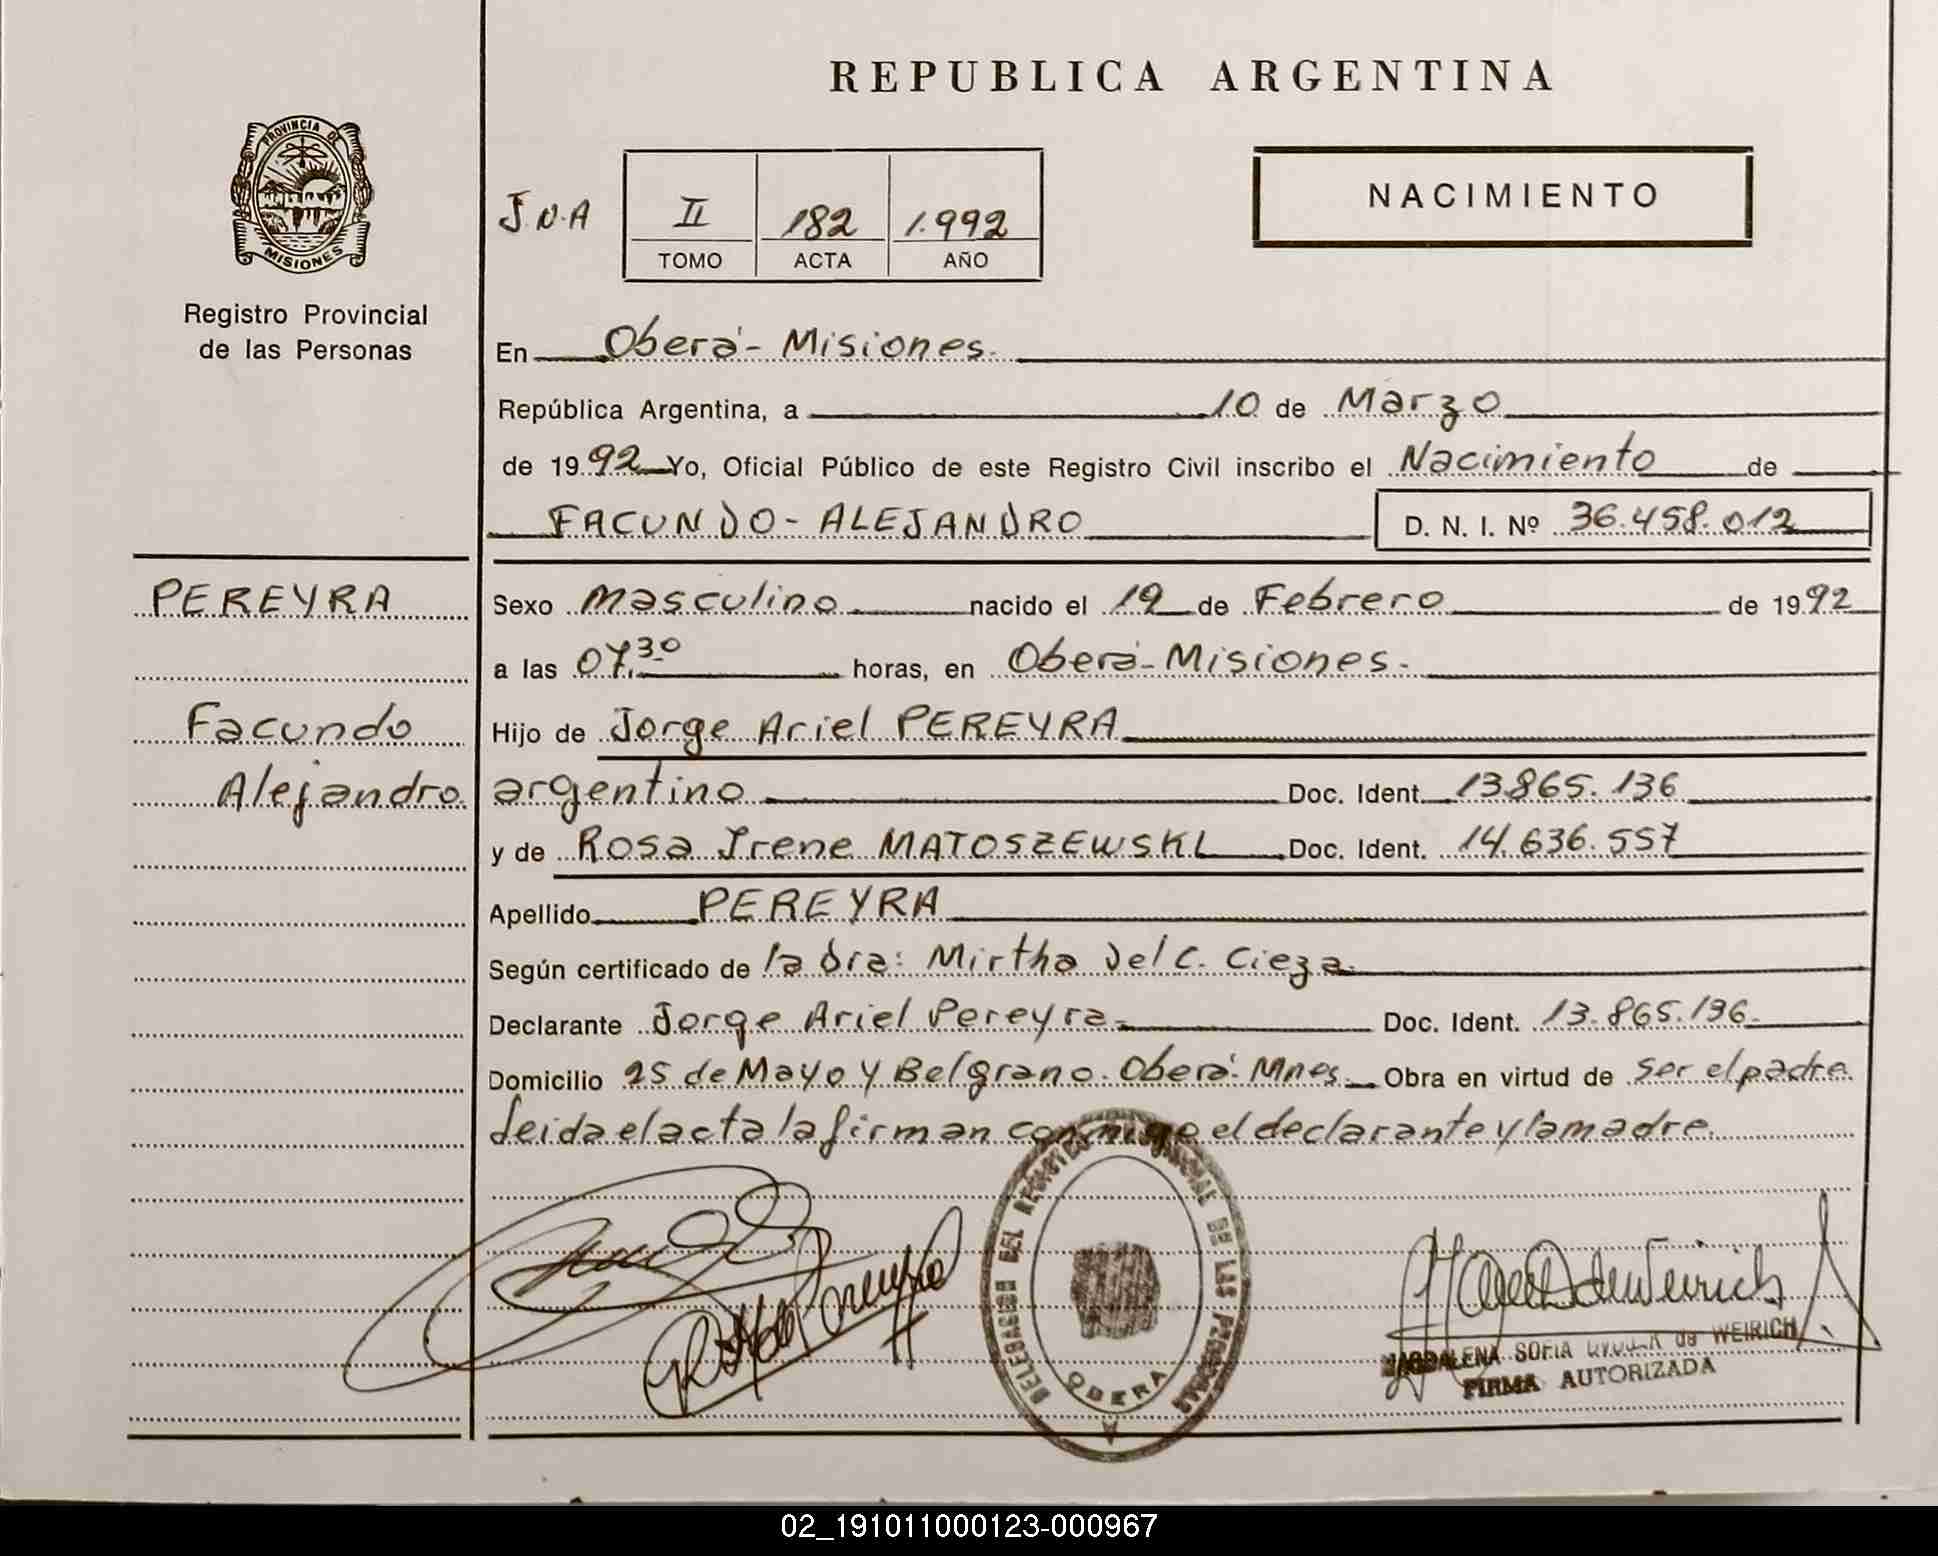 REPUBLICA ARGENTINA
PROVINCIA DE
MISIONES
Registro Provincial
de las Personas
J.N.A
II 182 1.992
TOMO ACTA AÑO
NACIMIENTO
En Oberá - Misiones.
República Argentina, a 10 de Marzo
de 1992 Yo, Oficial Público de este Registro Civil inscribo el Nacimiento de
FACUNDO - ALEJANDRO D. N. I. Nº 36.458.012
PEREYRA
Facundo
Alejandro.
Sexo masculino nacido el 19 de Febrero de 1992
a las 07,30 horas, en Oberá - Misiones.
Hijo de Jorge Ariel PEREYRA
argentino Doc. Ident. 13865.136
y de Rosa Irene MATOSZEWSKI Doc. Ident. 14.636.557
Apellido PEREYRA
Según certificado de la Dra: Mirtha Del C. Cieza
Declarante Jorge Ariel Pereyra Doc. Ident. 13.865.136
Domicilio 25 de Mayo y Belgrano. Oberá. Mnes. Obra en virtud de ser el padre
Leida el acta la firman conmigo el declarante y la madre.
DEL DE LAS
OBERA
MAGDALENA SOFIA de WEIRICH
FIRMA AUTORIZADA
02_191011000123-000967